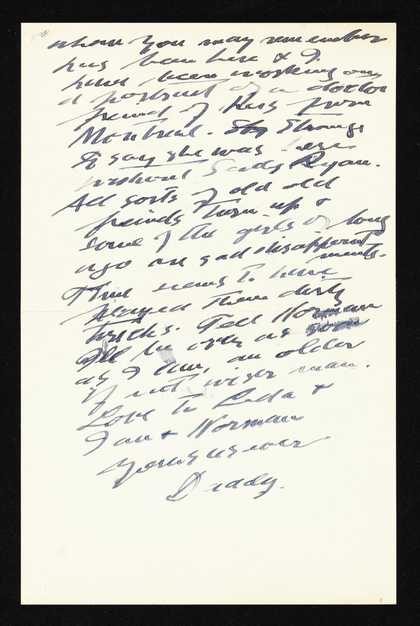 whom you may remember
has been here & I
have been working on
a portrait of a doctor
friend of hers from
Montreal. Strange
to say she was
Lady Ryan.
All sorts of old old
friends turn up &
some of the girls of long
ago are sad disappoint
ments.
Time seems to have
played them dirty
tricks. Tell Norman
I'll be over as soon
as I can, an older
if not wiser man.
Love to &
Ian & Norman
Yours as ever
Daddy.